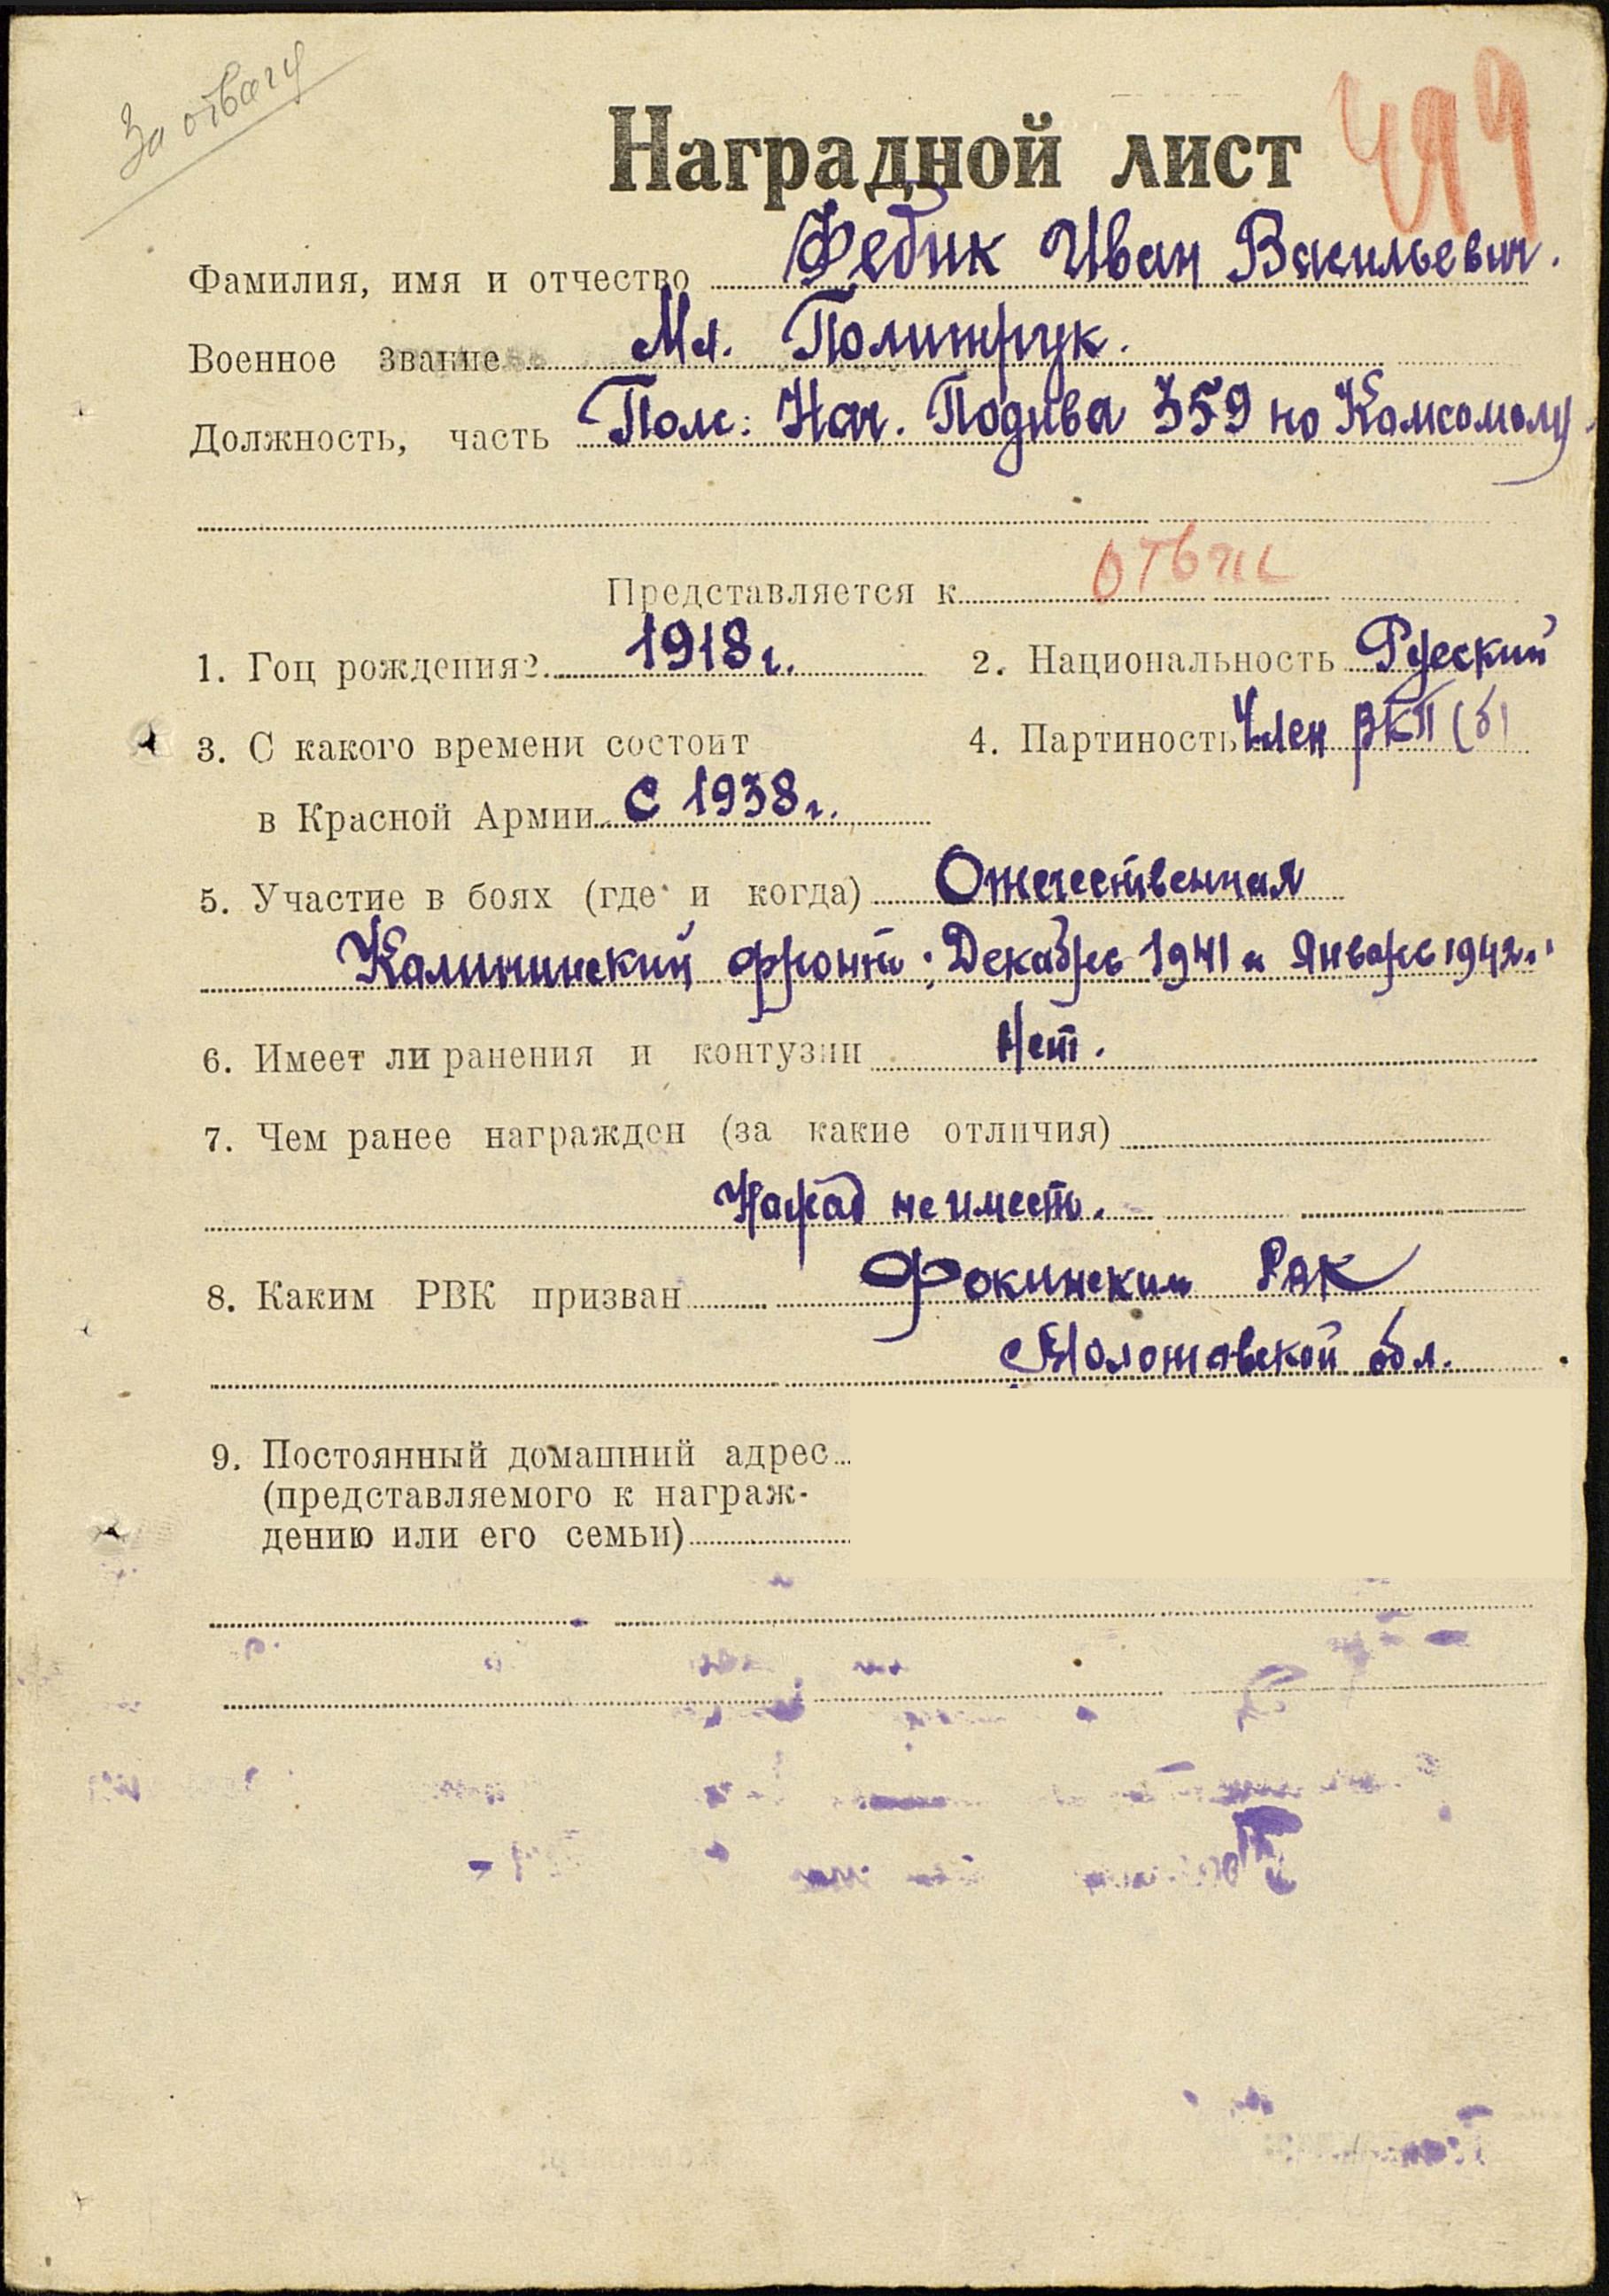 За отвагу
499
Наградной лист
Фамилия, имя и отчество Федик Иван Васильевич.
Военное звание Мл. Политрук.
Должность, часть Пом: Нач. Подива 359 по Комсомолу.
Представляется к отваг
1. Гоц рождения 1918 г. 2. Национальность Русский
3. С какого времени состоит 4. Партиность Член ВКП(б)
в Красной Армии С 1938 г.
5. Участие в боях (где и когда) Отечественная
Калининский фронт; Декабрь 1941 и Январь 1942 г.
6. Имеет ли ранения и контузии Нет.
7. Чем ранее награжден (за какие отличия)
Наград не имеет.
8. Каким РВК призван Фокинским РВК
Молотовской обл.
9. Постоянный домашний адрес
(представляемого к награж-
дению или его семьи)